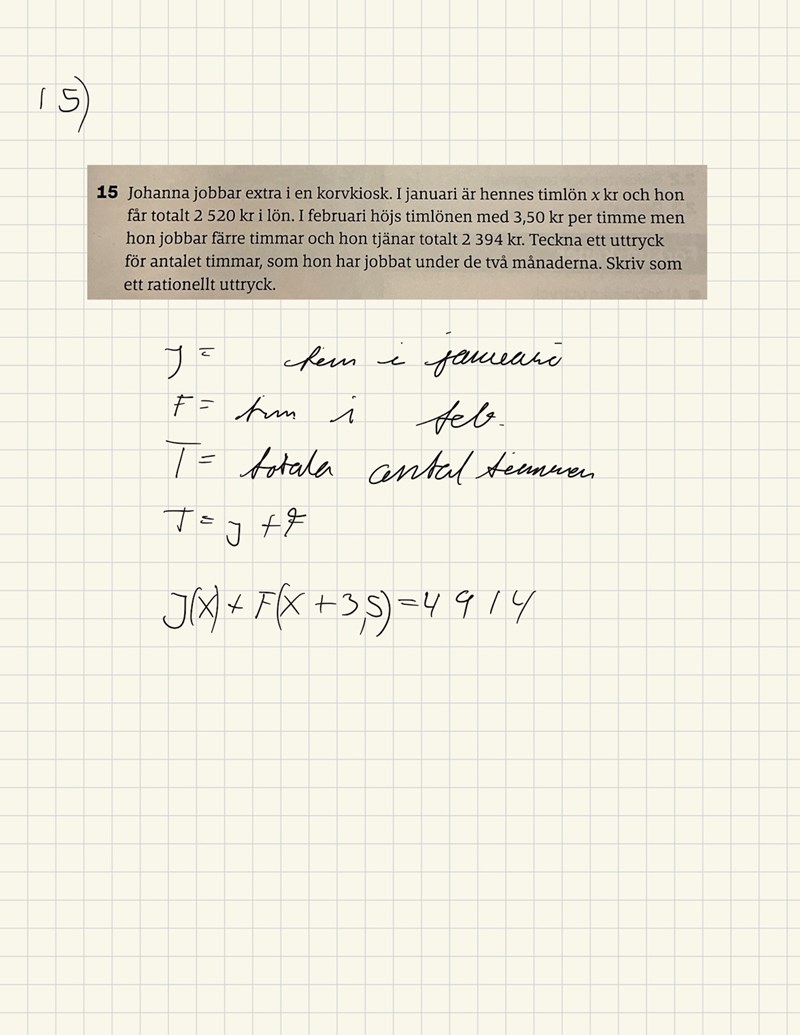 15)
15 Johanna jobbar extra i en korvkiosk. I januari är hennes timlön x kr och hon
får totalt 2 520 kr i lön. I februari höjs timlönen med 3,50 kr per timme men
hon jobbar färre timmar och hon tjänar totalt 2 394 kr. Teckna ett uttryck
för antalet timmar, som hon har jobbat under de två månaderna. Skriv som
ett rationellt uttryck.
J = i januari
F = tim i feb.
T = totala antal timmar
T = J + F
J(x) + F(x + 3,5) = 4914